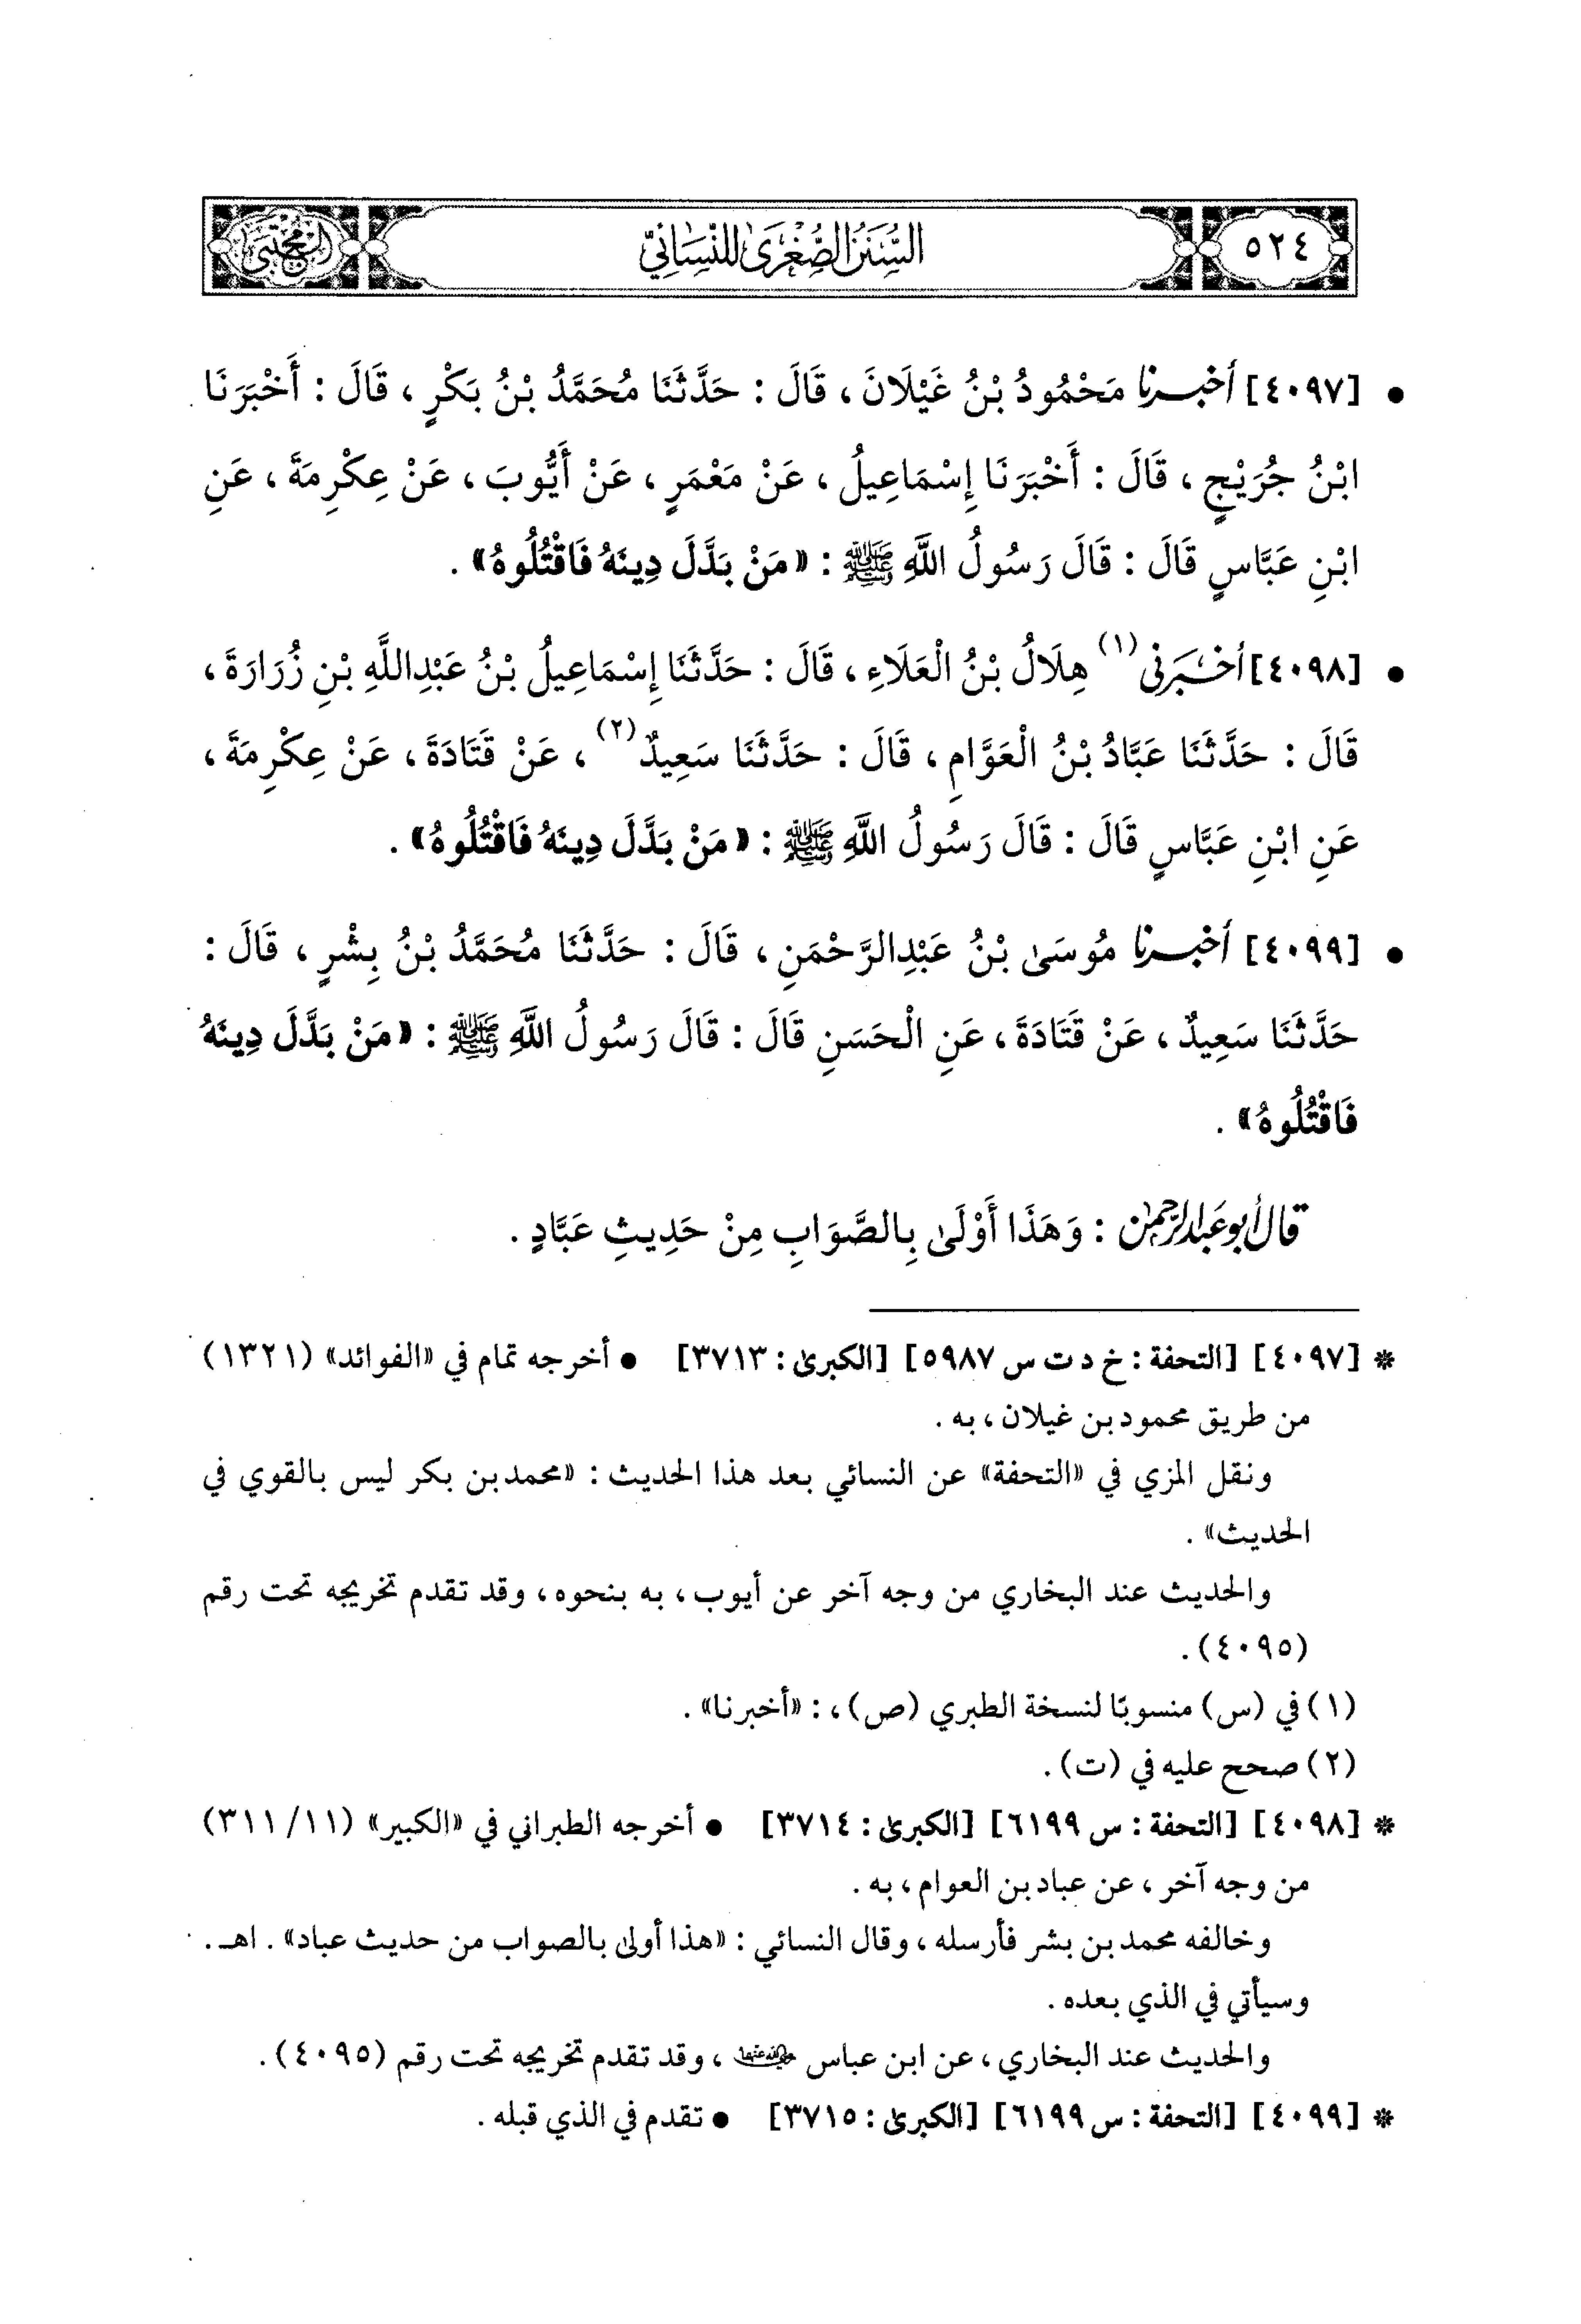 ٥٢٤
السُّنَنُ الصُّغْرَىٰ لِلنَّسَائِيِّ
المجتبى
• [٤٠٩٧] أخبرنا مَحْمُودُ بْنُ غَيْلَانَ، قَالَ: حَدَّثَنَا مُحَمَّدُ بْنُ بَكْرٍ، قَالَ: أَخْبَرَنَا
ابْنُ جُرَيْجٍ، قَالَ: أَخْبَرَنَا إِسْمَاعِيلُ، عَنْ مَعْمَرٍ، عَنْ أَيُّوبَ، عَنْ عِكْرِمَةَ، عَنِ
ابْنِ عَبَّاسٍ قَالَ: قَالَ رَسُولُ اللَّهِ ﷺ: «مَنْ بَدَّلَ دِينَهُ فَاقْتُلُوهُ».
• [٤٠٩٨] أَخْبَرَنِي (١) هِلَالُ بْنُ الْعَلَاءِ، قَالَ: حَدَّثَنَا إِسْمَاعِيلُ بْنُ عَبْدِاللَّهِ بْنِ زُرَارَةَ،
قَالَ: حَدَّثَنَا عَبَّادُ بْنُ الْعَوَّامِ، قَالَ: حَدَّثَنَا سَعِيدٌ (٢)، عَنْ قَتَادَةَ، عَنْ عِكْرِمَةَ،
عَنِ ابْنِ عَبَّاسٍ قَالَ: قَالَ رَسُولُ اللَّهِ ﷺ: «مَنْ بَدَّلَ دِينَهُ فَاقْتُلُوهُ».
• [٤٠٩٩] أخبرنا مُوسَىٰ بْنُ عَبْدِالرَّحْمَنِ، قَالَ: حَدَّثَنَا مُحَمَّدُ بْنُ بِشْرٍ، قَالَ:
حَدَّثَنَا سَعِيدٌ، عَنْ قَتَادَةَ، عَنِ الْحَسَنِ قَالَ: قَالَ رَسُولُ اللَّهِ ﷺ: «مَنْ بَدَّلَ دِينَهُ
فَاقْتُلُوهُ».
قال أبو عَبدالرحمٰن: وَهَذَا أَوْلَىٰ بِالصَّوَابِ مِنْ حَدِيثِ عَبَّادٍ.
* [٤٠٩٧] [التحفة: خ د ت س ٥٩٨٧] [الكبرىٰ: ٣٧١٣] • أخرجه تمام في «الفوائد» (١٣٢١)
من طريق محمود بن غيلان، به.
ونقل المزي في «التحفة» عن النسائي بعد هذا الحديث: «محمد بن بكر ليس بالقوي في
الحديث».
والحديث عند البخاري من وجه آخر عن أيوب، به بنحوه، وقد تقدم تخريجه تحت رقم
(٤٠٩٥).
(١) في (س) منسوبًا لنسخة الطبري (ص)،: «أخبرنا».
(٢) صحح عليه في (ت).
* [٤٠٩٨] [التحفة: س ٦١٩٩] [الكبرىٰ: ٣٧١٤] • أخرجه الطبراني في «الكبير» (١١/ ٣١١)
من وجه آخر، عن عباد بن العوام، به.
وخالفه محمد بن بشر فأرسله، وقال النسائي: «هذا أولىٰ بالصواب من حديث عباد». اهـ.
وسيأتي في الذي بعده.
والحديث عند البخاري، عن ابن عباس رضي الله عنهما، وقد تقدم تخريجه تحت رقم (٤٠٩٥).
* [٤٠٩٩] [التحفة: س ٦١٩٩] [الكبرىٰ: ٣٧١٥] • تقدم في الذي قبله.